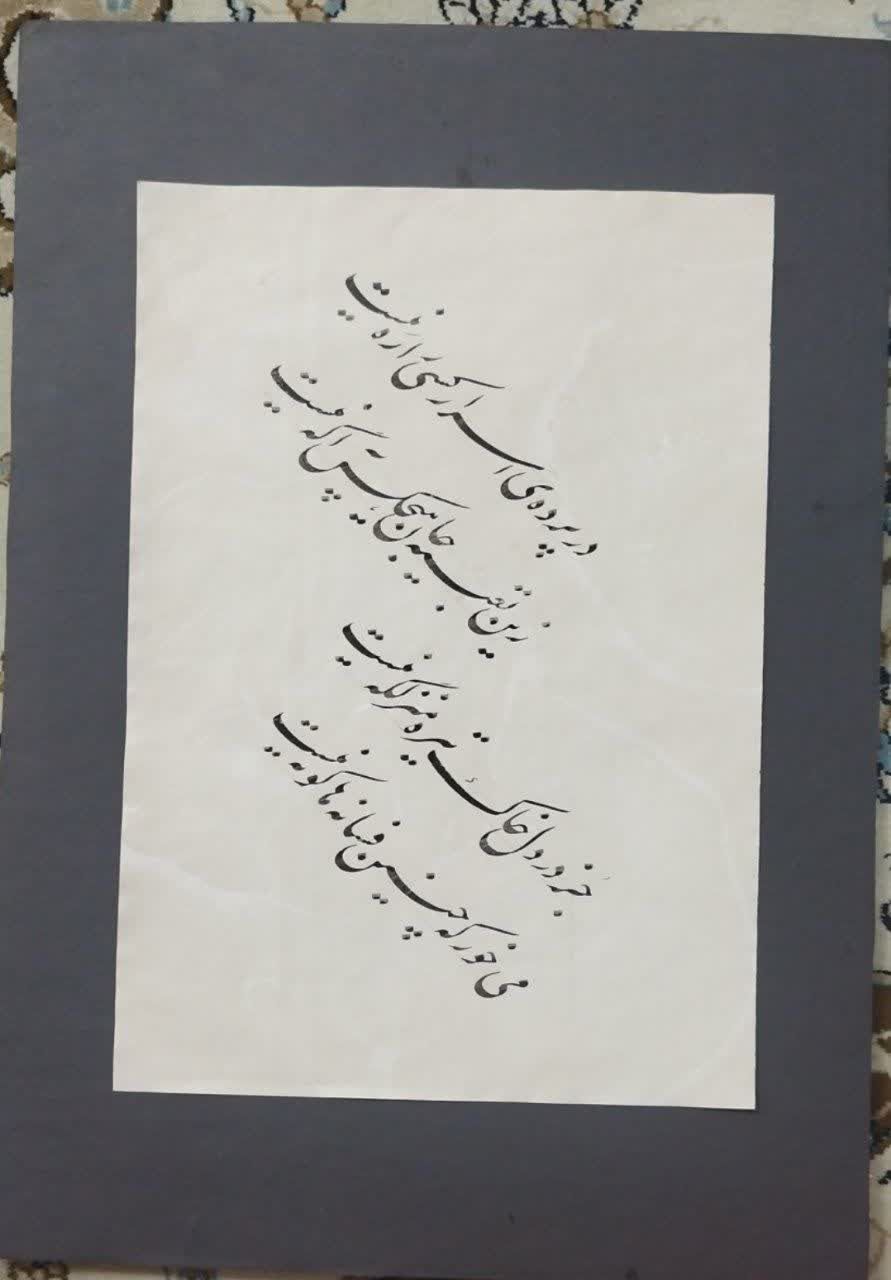 در پرده‌ی اسرار کسی را ره نیست
زین تعبیه جان هیچکس آگه نیست
جز در دل خاک تیره منزلگه نیست
می خور که چنین فسانه ها کوته نیست